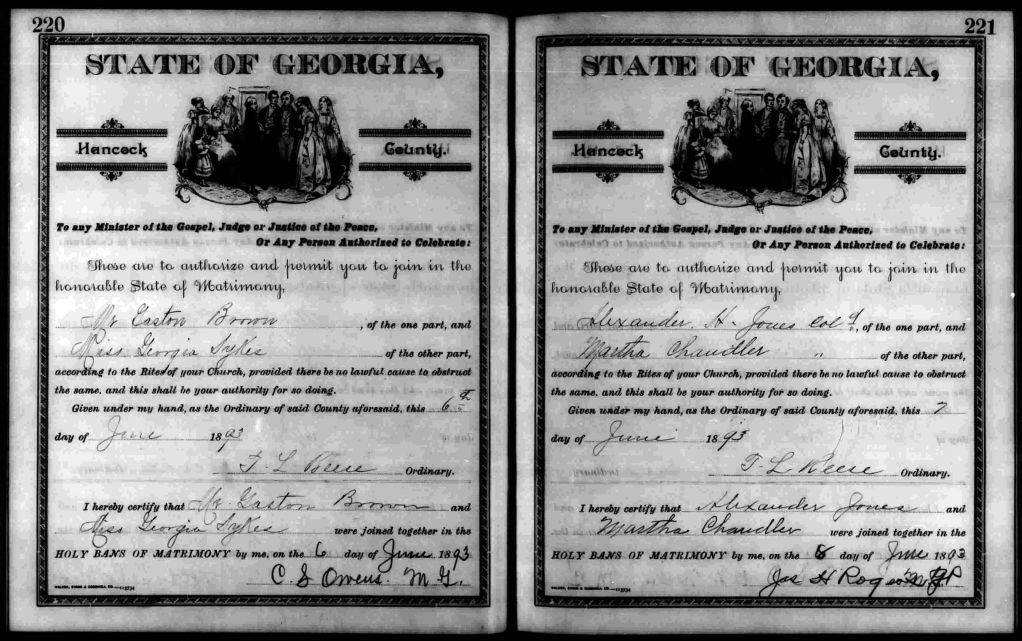 220
STATE OF GEORGIA,
Hancock County.
To any Minister of the Gospel, Judge or Justice of the Peace,
Or Any Person Authorized to Celebrate:
These are to authorize and permit you to join in the
honorable State of Matrimony,
Mr Gaston Brown , of the one part, and
Miss Georgia Sykes of the other part,
according to the Rites of your Church, provided there be no lawful cause to obstruct
the same, and this shall be your authority for so doing.
Given under my hand, as the Ordinary of said County aforesaid, this 6th
day of June 1893
T. L Reese Ordinary.
I hereby certify that Mr Gaston Brown and
Miss Georgia Sykes were joined together in the
HOLY BANS OF MATRIMONY by me, on the 6 day of June 1893
C. S Owens. M G.
221
STATE OF GEORGIA,
Hancock County.
To any Minister of the Gospel, Judge or Justice of the Peace,
Or Any Person Authorized to Celebrate:
These are to authorize and permit you to join in the
honorable State of Matrimony,
Alexander. H. Jones Col d, of the one part, and
Martha Chandler " of the other part,
according to the Rites of your Church, provided there be no lawful cause to obstruct
the same, and this shall be your authority for so doing.
Given under my hand, as the Ordinary of said County aforesaid, this 7
day of June 1893
T. L Reese Ordinary.
I hereby certify that Alexander Jones and
Martha Chandler were joined together in the
HOLY BANS OF MATRIMONY by me, on the 8 day of June 1893
Jas H Rogers